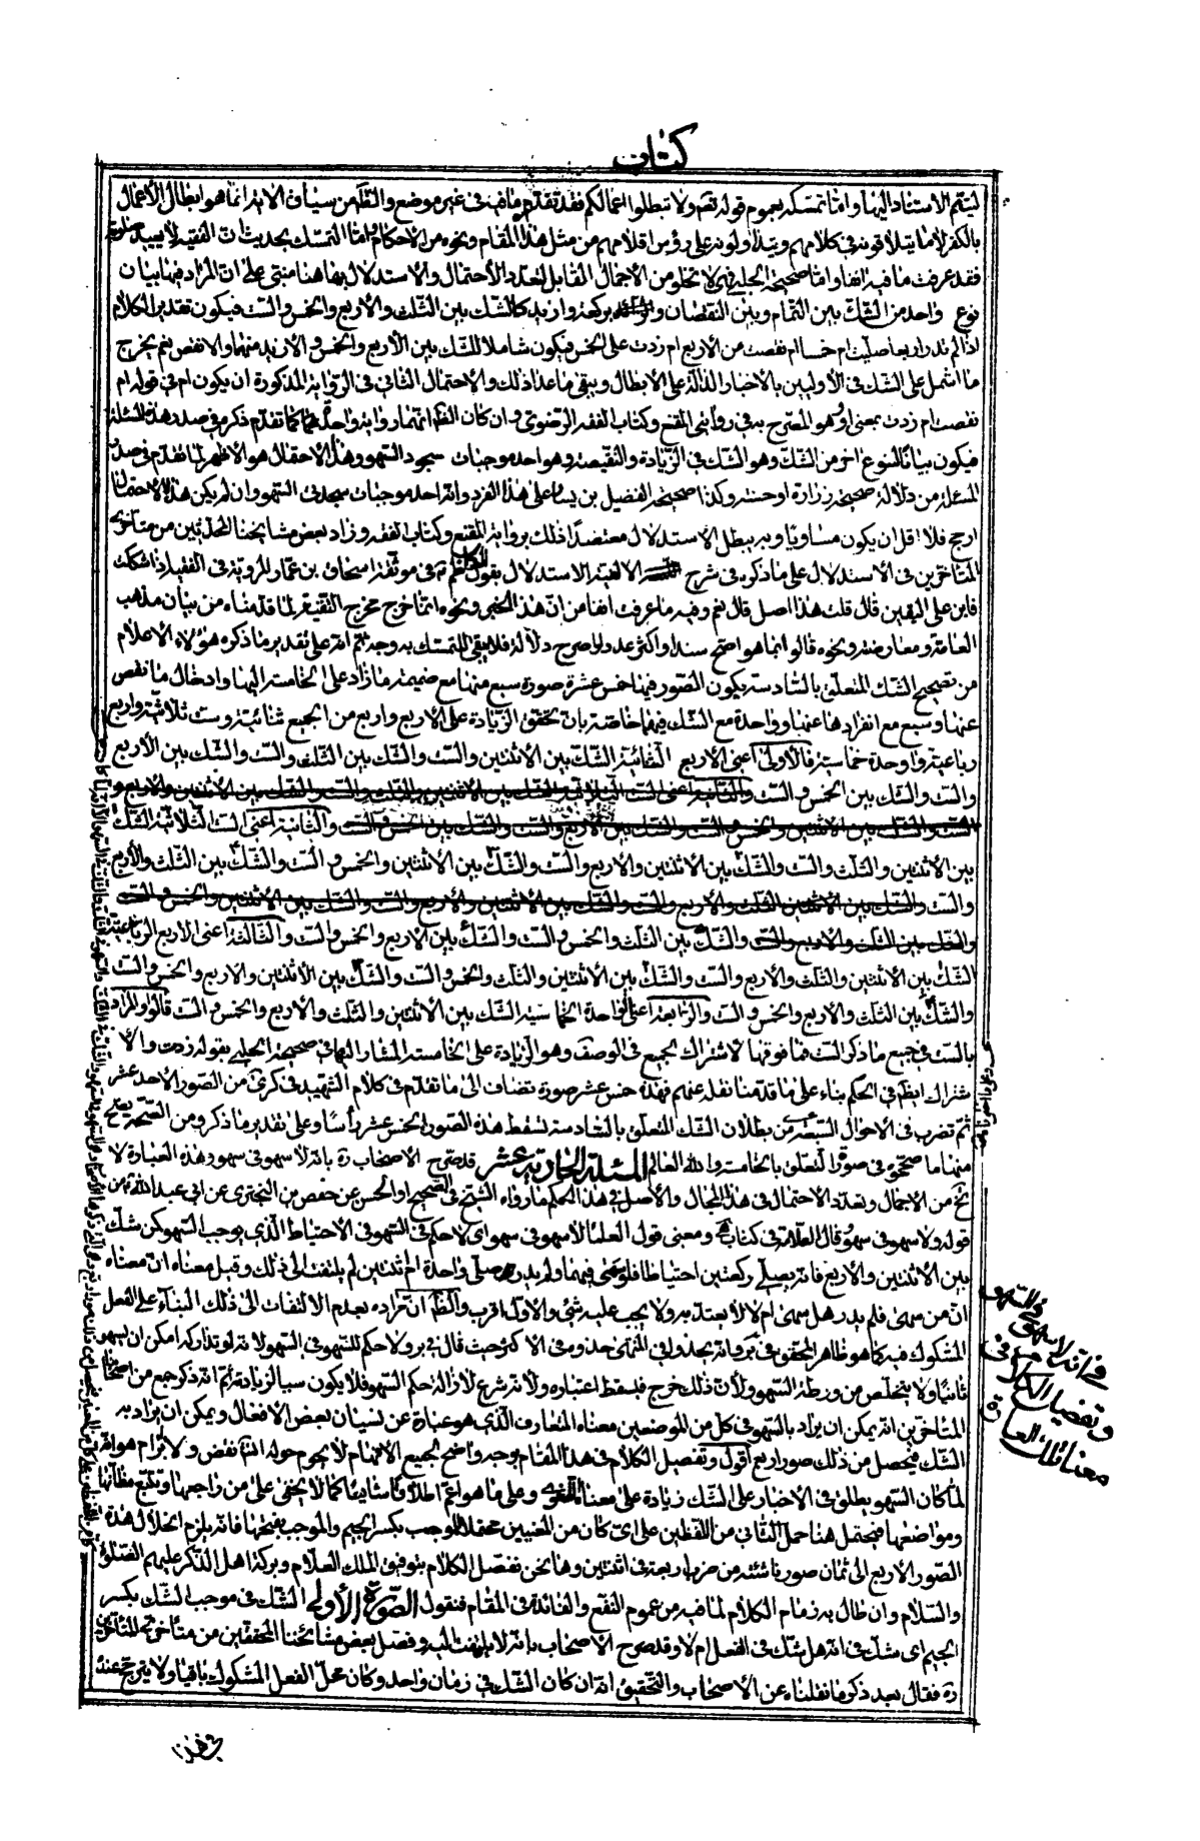 كتاب
ليتم الاستناد اليها واما تمسكه بعموم قوله تعم ولا تبطلوا اعمالكم فقد تقدم ما فيه في غير موضع والظم من سياق الاية انما هو ابطال الأعمال
بالكفر لا ما يتداولونه على رؤس اقلامهم من مثل هذا المقام ونحوه من الاحكام واما التمسك بحديث ان الفقيه لا يعيد صلوته
فقد عرفت ما فيه انفا واما صحيحة الحلبي فهي لا تخلو من الاجمال القابل لتعدد الأحتمال والاستدلال بها هنا مبني على ان المراد منها بيان
نوع واحد من الشك بين التمام وبين النقصان بركعة وازيد كالشك بين الثلث والاربع والخمس والست فيكون تقدير الكلام
اذا لم تدر اربعا صليت ام خمسا ام نقصت من الاربع ام زدت على الخمس فيكون شاملا للشك بين الأربع والخمس والازيد منهما والانقص نعم يخرج
ما اشتمل على الشك في الأوليين بالاخبار الدالة على الابطال ويبقى ما عدا ذلك والاحتمال الثاني في الرواية المذكورة ان يكون ام في قوله ام
نقصت ام زدت بمعنى او وهو المصرح به في روايتي المقنع وكتاب الفقه الرضوي وان كان الظم انهما رواية واحدة كما تقدم ذكره في صدر هذه المسئلة
فيكون بيانا لنوع اخر من الشك وهو الشك في الزيادة والنقيصة وهو احد موجبات سجود السهو وهذا الاحتمال هو الأظهر لما تقدم في صدر
المسئلة من دلالة صحيحة زرارة او حسنته وكذا صحيحة الفضيل بن يسار على هذا الفرد وانه احد موجبات سجدتي السهو وان لم يكن هذا الاحتمال
ارجح فلا اقل ان يكون مساويا وبه يبطل الاستدلال معتضدا ذلك برواية المقنع وكتاب الفقه وزاد بعض مشايخنا المحدثين من متأخري
المتأخرين في الاستدلال على ما ذكره في شرح الالفية الاستدلال بقول الكاظم ع في موثقة اسحاق بن عمار المروية في الفقيه اذا شككت
فابن على اليقين قال قلت هذا اصل قال نعم وفيه ما عرفت انفا من ان هذا الخبر ونحوه انما خرج مخرج التقية لما قدمناه من بيان مذهب
العامة ومعارضته ونحوه قالوا بما هو اصح سندا واكثر عددا واصرح دلالة فلا يبقى للتمسك به وجه ثم انه على تقدير ما ذكره هؤلاء الاعلام
من تصحيح الشك المتعلق بالسادسة يكون الصور فيها خمس عشرة صورة سبع منها مع ضميمة ما زاد على الخامسة اليها وادخال ما نقص
عنها وسبع مع انفرادها عنها وواحدة مع الشك فيهما خاصة بان تحقق الزيادة على الاربع واربع من الجميع ثنائية وست ثلاثية واربع
رباعية وواحدة خماسية فالأولى اعني الاربع الثنائية الشك بين الاثنتين والست والشك بين الثلث والست والشك بين الأربع
والست والشك بين الخمس والست
والثانية اعني الست الثلاثية الشك
بين الاثنتين والثلث والست والشك بين الاثنتين والاربع والست والشك بين الاثنتين والخمس والست والشك بين الثلث والأربع
والست
والشك بين الثلث والخمس والست والشك بين الاربع والخمس والست والثالثة اعني الاربع الرباعية
الشك بين الاثنتين والثلث والأربع والست والشك بين الاثنتين والثلث والخمس والست والشك بين الأثنتين والاربع والخمس والست
والشك بين الثلث والأربع والخمس والست والرابعة اعني الواحدة الخماسية الشك بين الأثنتين والثلث والاربع والخمس والست قالوا والمراد
بالست في جميع ما ذكر الست فما فوقها لاشتراك الجميع في الوصف وهو الزيادة على الخامسة المشار اليها في صحيحة الحلبي بقوله زدت والا
شتراك ايضا في الحكم بناء على ما قدمنا نقله عنهم فهذه خمس عشر صورة تضاف الى ما تقدم في كلام الشهيد في كرى من الصور الاحد عشر
ثم تضرب في الاحوال التسعة بطلان الشك المتعلق بالسادسة تسقط هذه الصور الخمس عشر رأسا وعلى تقدير ما ذكروه من الصحة يصح
منها ما صححوه في صور التعلق بالخامسة والله العالم المسئلة الحادية عشر قد صرح الاصحاب رة بانه لا سهو في سهو وهذه العبارة لا
تخ من الاجمال وتعدد الاحتمال في هذا المجال والأصل في هذا الحكم ما رواه الشيخ في الصحيح او الحسن عن حفص بن البختري عن ابي عبد الله ع من
قوله ولا سهو في سهو قال العلامة في كتاب هي ومعنى قول العلماء لا سهو في سهو اى لا حكم في السهو في الاحتياط الذي يوجب السهو كمن شك
بين الاثنتين والأربع فانه يصلي ركعتين احتياطا فلو سهى فيهما ولم يدر صلى واحدة ام ثنتين لم يلتفت الى ذلك وقيل معناه ان معناه
ان من سهى فلم يدر هل سهى ام لا لا يعتد به ولا يجب عليه شئ والاول اقرب والظم ان مراده بعدم الالتفات الى ذلك البناء على الفعل
المشكوك فيه كما هو ظاهر المحقق في بر فانه يحذو في المنتهى حذوه في الاكثر حيث قال في بر ولا حكم للسهو في السهو لانه لو تداركه امكن ان يسهو
ثانيا ولا يتخلص من ورطة السهو ولأن ذلك حرج فيسقط اعتباره ولانه شرع لازالة حكم السهو فلا يكون سببا لزيادته ثم انه ذكر جمع من اصحابنا
المتأخرين انه يمكن ان يراد بالسهو في كل من الموضعين معناه المتعارف الذي هو عبارة عن نسيان بعض الافعال ويمكن ان يراد به
الشك فيحصل من ذلك صور اربع اقول وتفصيل الكلام في هذا المقام بوجه واضح لجميع الافهام لا يحوم حوله انش نقض ولا ابرام هو انه
لما كان السهو يطلق في الاخبار على الشك زيادة على معناه اللغوي وعلى ما هو اعم اطلاقا شايعا كما لا يخفى على من راجعها وتتبع مظانها
ومواضعها فيحتمل هنا حمل الثاني من اللفظين على اى كان من المعنيين محتملا للموجب بكسر الجيم والموجب بفتحها فانه يلزم انحلال هذه
الصور الاربع الى ثمان صور ناشئة من ضرب اربعة في اثنتين وها نحن نفصل الكلام بتوفيق الملك العلام وبركة اهل الذكر عليهم الصلوة
والسلام وان طال به زمام الكلام لما فيه من عموم النفع والفائدة في المقام فنقول الصورة الأولى الشك في موجب الشك بكسر
الجيم اى شك في انه هل شك في الفعل ام لا وقد صرح الاصحاب بانه لا يلتفت اليه وفصل بعض مشائخنا المحققين من متأخري المتأخرين
رة فقال بعد ذكر ما نقلناه عن الأصحاب والتحقيق انه ان كان الشك في زمان واحد وكان محل الفعل المشكوك باقيا ولا يترجح عنده
في انه لا سهو في السهو
وتفصيل الكلام في
معنا تلك العبارة
في هذا